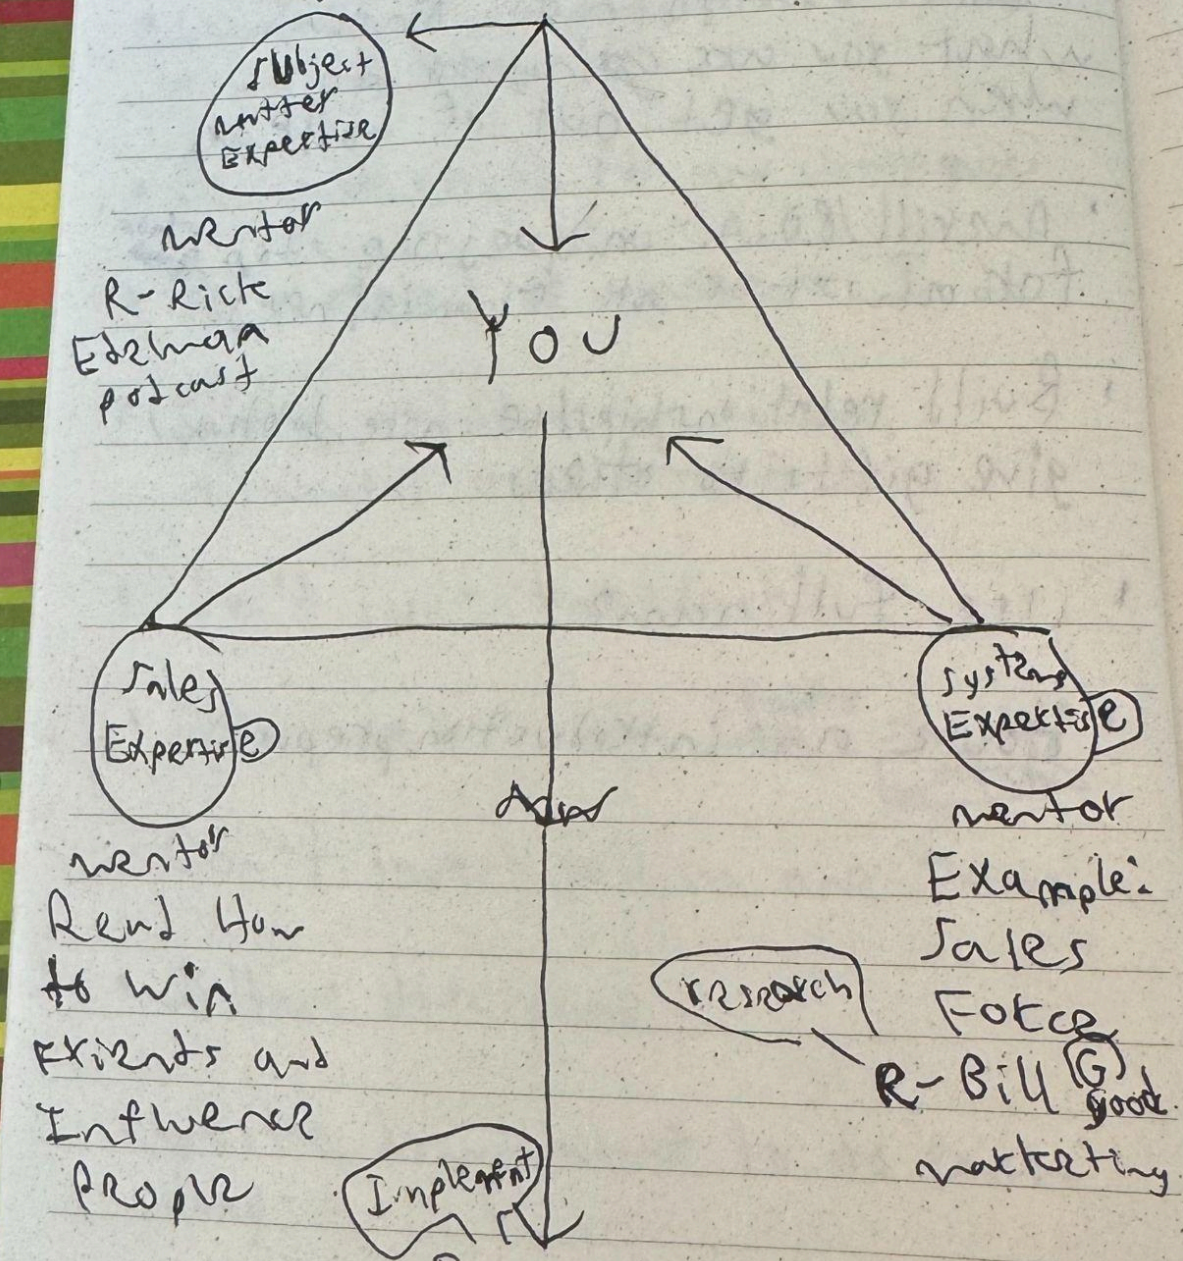 Subject
matter
Expertise
mentor
R-Rick
Edelman
podcast
YOU
Sales
Expertise
mentor
Read How
to Win
Friends and
Influence
People
Systems
Expertise
mentor
Example:
Sales
Force
research
R- Bill G
good
marketing
Implement